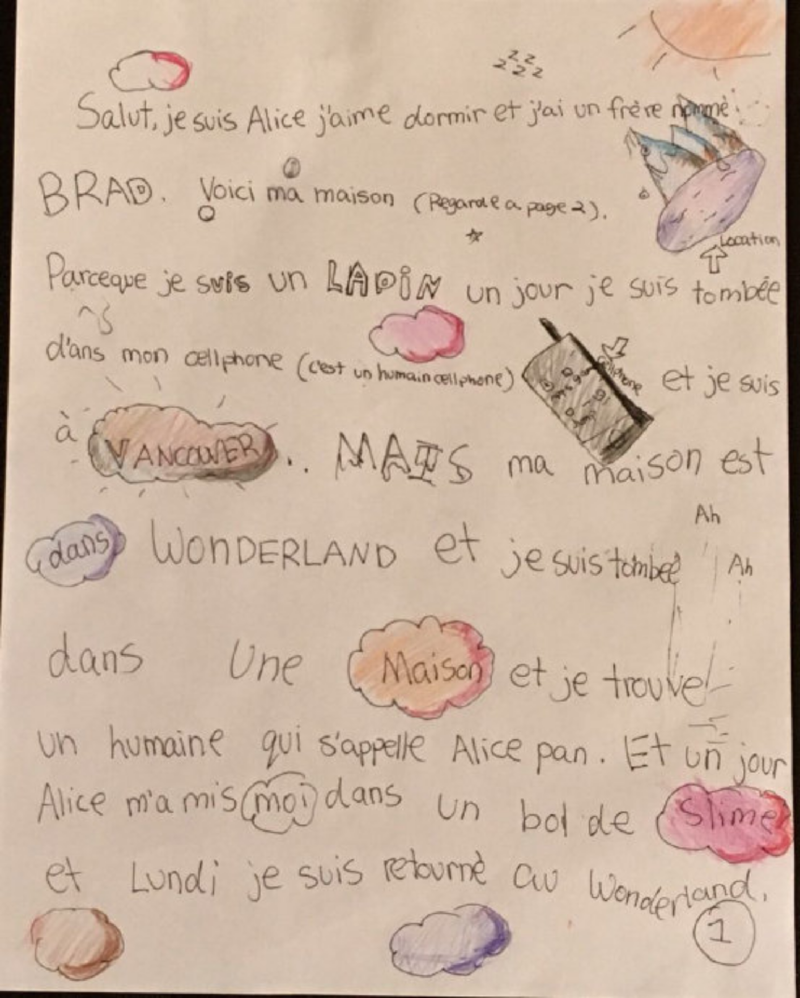 z z z
z z z z
Salut, je suis Alice j'aime dormir et j'ai un frère nommé:
BRAD. Voici ma maison (Regarde a page 2).
Location
Parceque je suis un LAPIN un jour je suis tombée
d'ans mon cellphone (c'est un humain cellphone) cellphone et je suis
à VANCOUVER.. MAIS ma maison est
Ah
dans WONDERLAND et je suis tombée Ah
dans Une Maison et je trouve
un humaine qui s'appelle Alice pan. Et un jour
Alice m'a mis moi dans un bol de Slime
et Lundi je suis retourné au Wonderland.
1